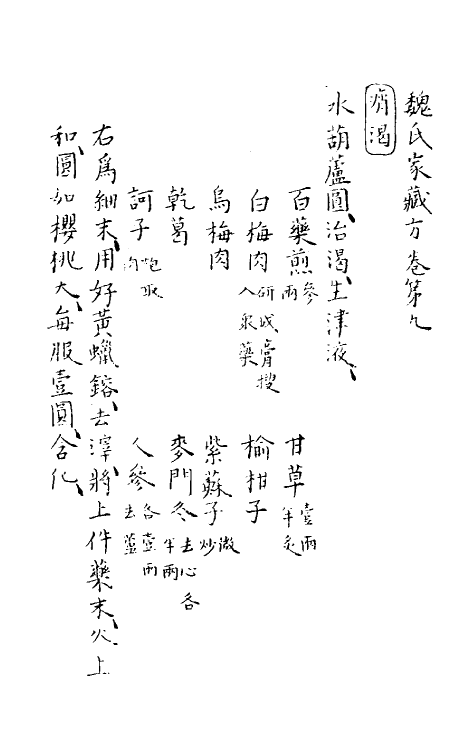 魏氏家藏方卷第九
痟渴
水葫蘆圓治渴生津液
百藥煎 參兩
甘草 壹兩半炙
白梅肉 研成膏搜入衆藥
榆柑子
烏梅肉
紫蘇子 微炒
乾葛
麥門冬 去心各半兩
訶子 炮取肉
人參 各壹兩去蘆
右爲細末用好黃蠟鎔去滓將上件藥末火上
和圓如櫻桃大每服壹圓含化